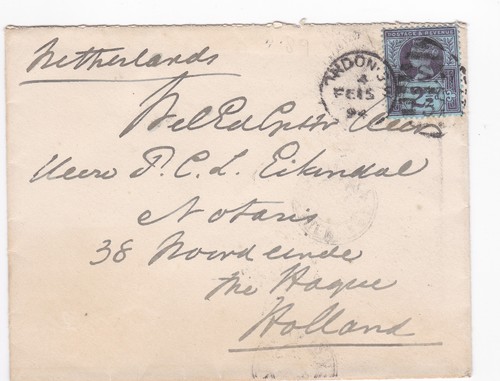 Netherlands
POSTAGE & REVENUE
LONDON
4
FE 15
94
Heer
Heere P. C. L. Eikendal
Notaris
38 Noordeinde
The Hague
Holland